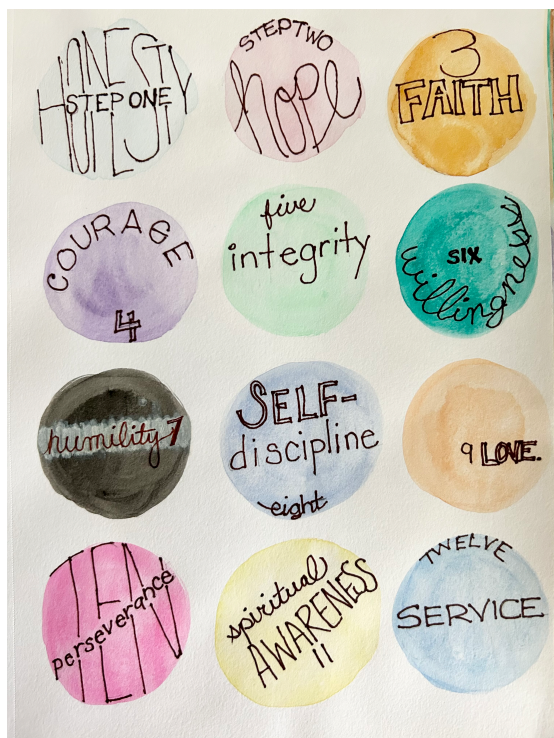 HONESTY
STEP ONE
STEP TWO
hope
3
FAITH
COURAGE
4
five
integrity
SIX
willingness
humility 7
SELF-
discipline
eight
9 LOVE.
TEN
perseverance
spiritual
AWARENESS
11
TWELVE
SERVICE